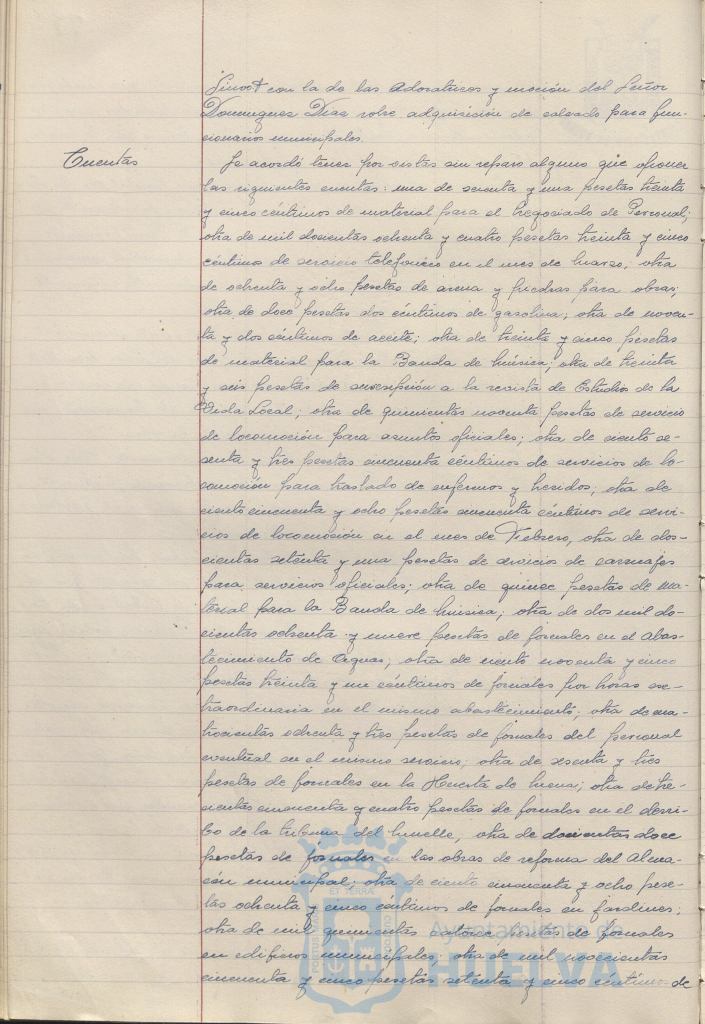 con la de las Adoratrices y moción del Señor
Dominguez Diaz sobre adquisición de calzado para fun-
cionarios municipales.
Cuentas
Se acordó tener por vistas sin reparo alguno que oponer
las siguientes cuentas: una de sesenta y una pesetas treinta
y cinco céntimos de material para el Negociado de Personal;
otra de mil doscientas ochenta y cuatro pesetas treinta y cinco
céntimos de servicio telefónico en el mes de Marzo; otra
de ochenta y ocho pesetas de arena y piedras para obras;
otra de doce pesetas dos céntimos de gasolina; otra de noven-
ta y dos céntimos de aceite; otra de treinta y cinco pesetas
de material para la Banda de Música; otra de treinta
y seis pesetas de suscripción a la revista de Estudios de la
Vida Local; otra de quinientas noventa pesetas de servicio
de locomoción para asuntos oficiales; otra de ciento se-
senta y tres pesetas cincuenta céntimos de servicios de lo-
comoción para traslado de enfermos y heridos; otra de
ciento cincuenta y ocho pesetas cincuenta céntimos de servi-
cios de locomoción en el mes de Febrero, otra de dos-
cientas setenta y una pesetas de servicios de carruajes
para servicios oficiales; otra de quince pesetas de ma-
terial para la Banda de Música; otra de dos mil do-
cientas ochenta y nueve pesetas de jornales en el Abas-
tecimiento de Aguas; otra de ciento noventa y cinco
pesetas treinta y un céntimos de jornales por horas ex-
traordinaria en el mismo abastecimiento; otra de cua-
trocientas ochenta y tres pesetas de jornales del personal
eventual en el mismo servicio; otra de sesenta y tres
pesetas de jornales en la Huerta de Mena; otra de tre-
cientas cincuenta y cuatro pesetas de jornales en el derri-
bo de la tribuna del Muelle, otra de doscientas doce
pesetas de jornales en las obras de reforma del Alma-
cén municipal; otra de ciento cincuenta y ocho pese-
tas ochenta y cinco céntimos de jornales en jardines;
otra de mil quinientas catorce pesetas de jornales
en edificios municipales; otra de mil novecientas
cincuenta y cinco pesetas setenta y cinco céntimos de
Ayuntamiento de
HUELVA
PORTUS MARIS
ET TERRÆ
CUSTODIA